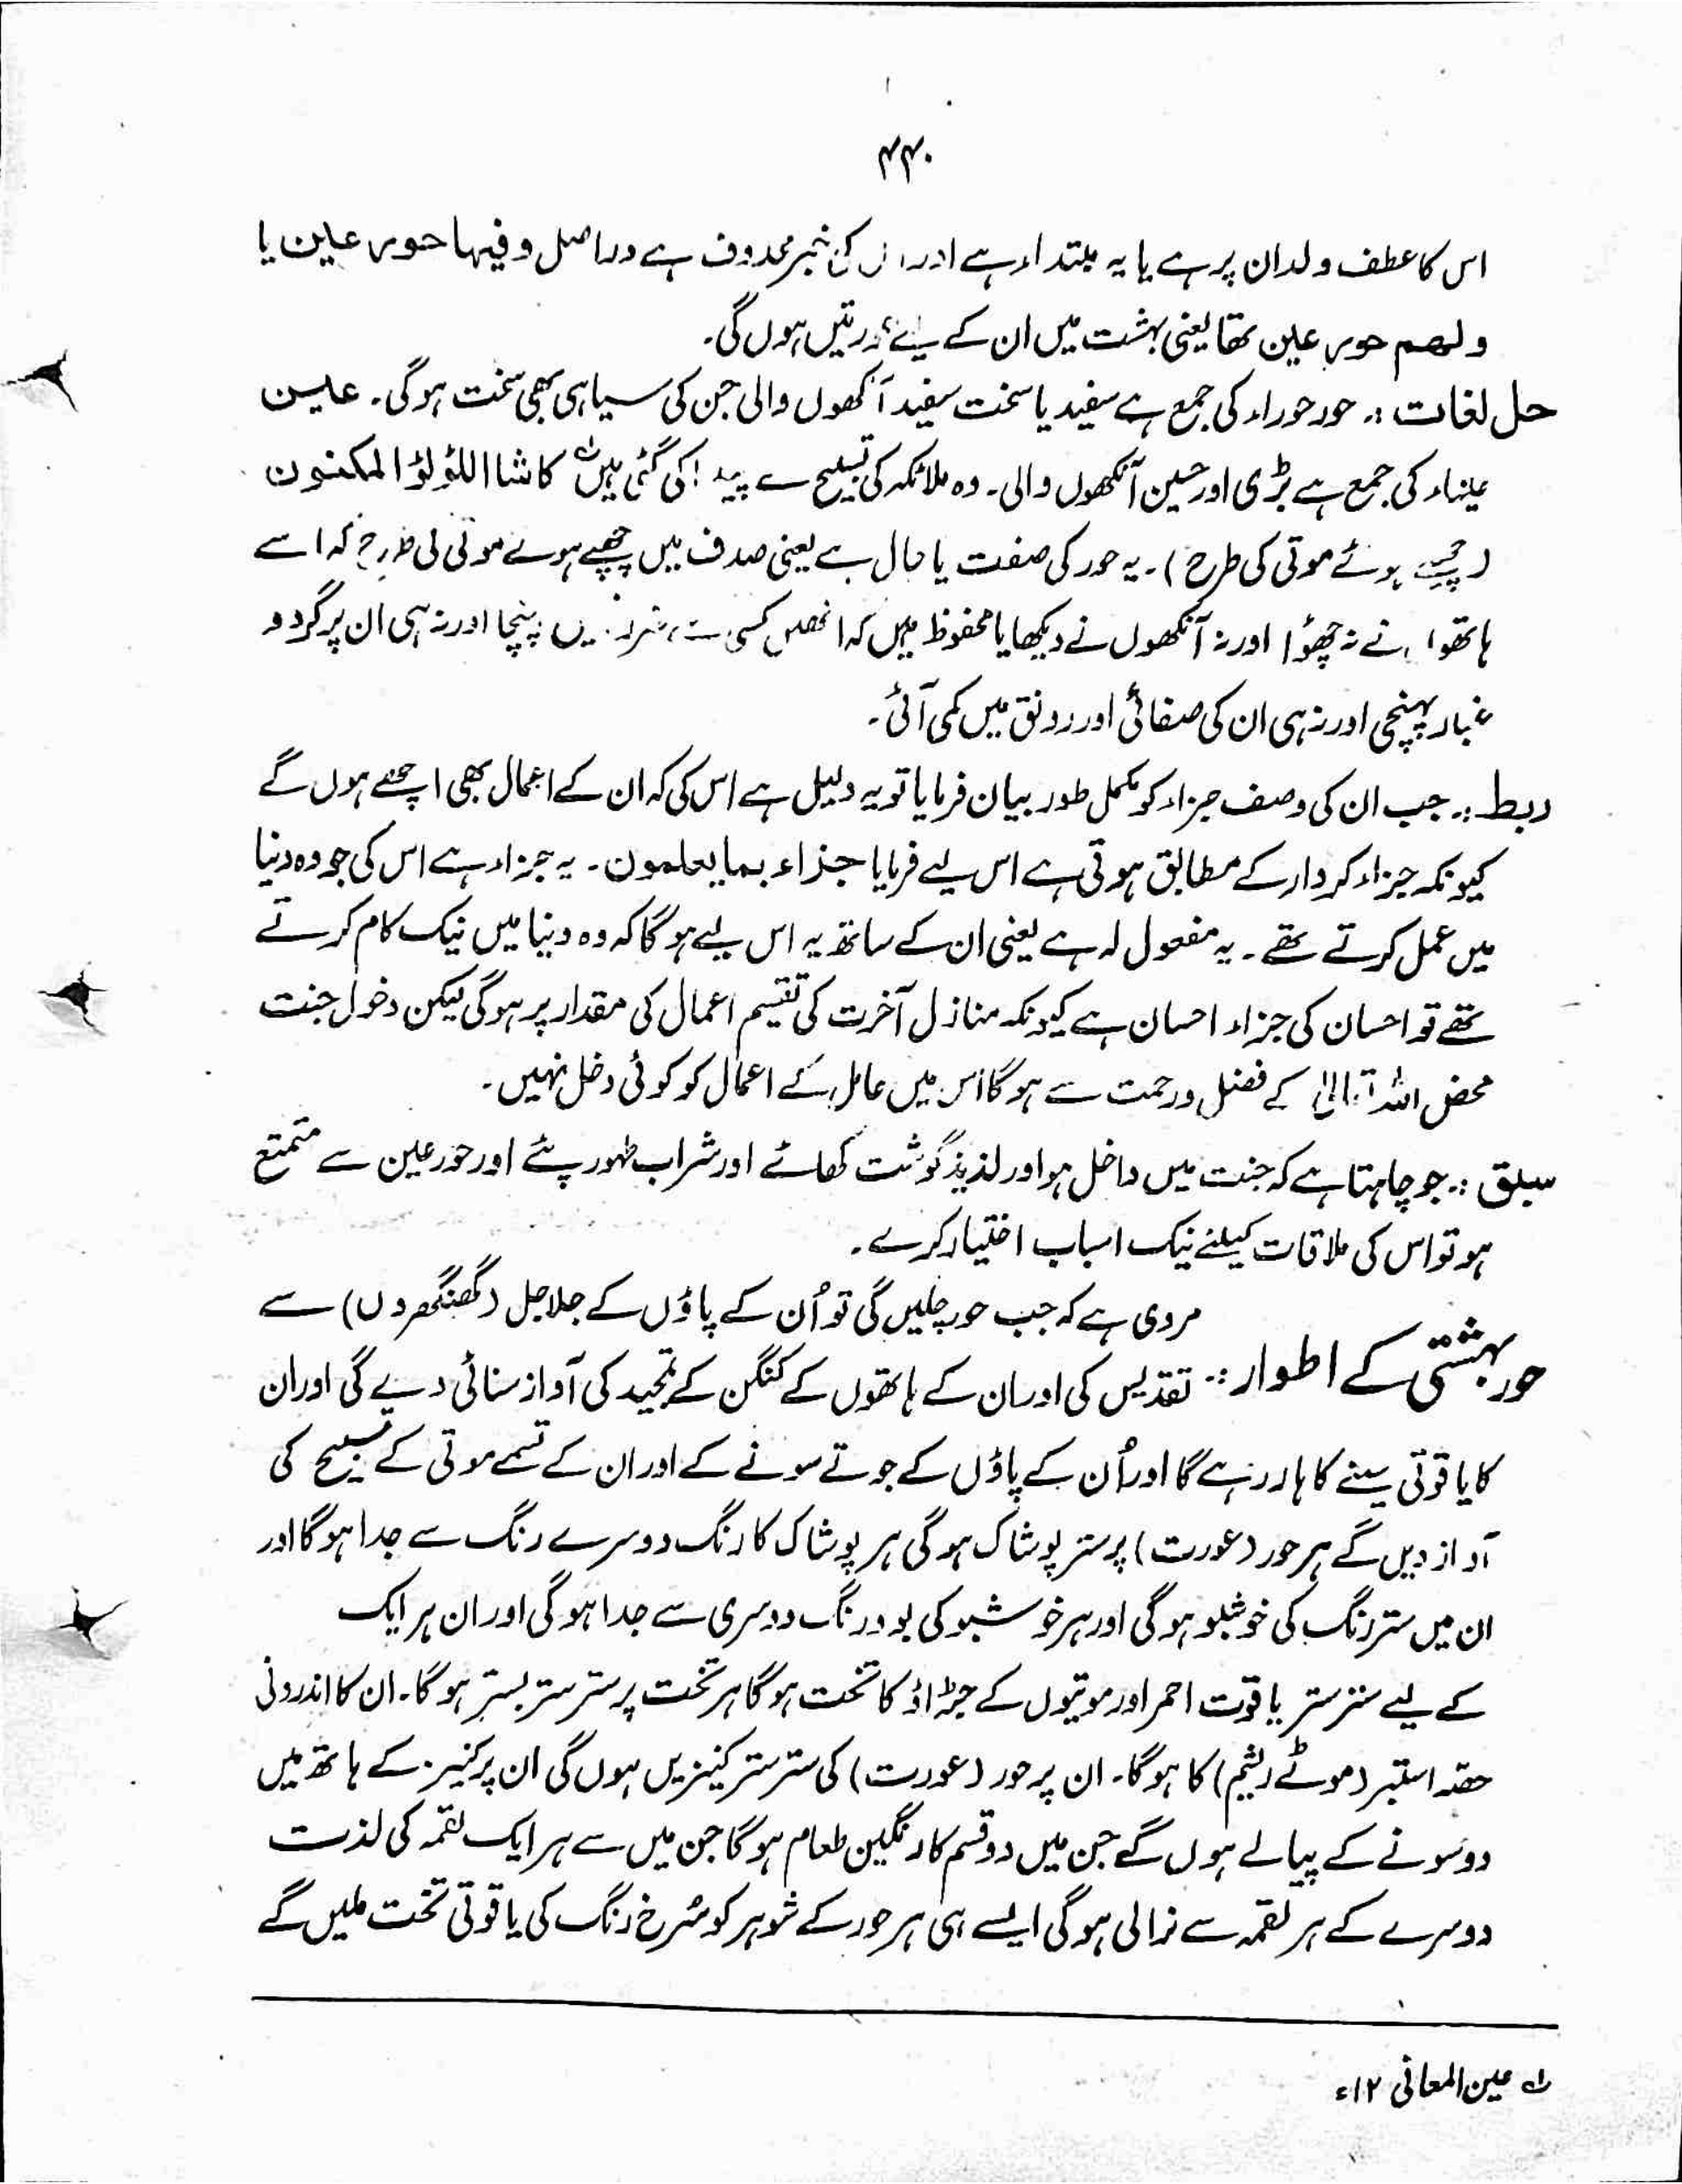 ۴۴۰
اس کا عطف ولدان پر ہے یا یہ مبتداء ہے اور اس کی خبر محذوف ہے دراصل وفیہا حور عین یا
ولھم حور عین تھا یعنی بہشت میں ان کے لیے عورتیں ہوں گی۔
حل لغات :۔ حور حوراء کی جمع ہے سفید یا سخت سفید آنکھوں والی جن کی سیاہی بھی سخت ہوگی۔ عین
عیناء کی جمع ہے بڑی اور حسین آنکھوں والی۔ وہ ملائکہ کی تسبیح سے پیدا کی گئی ہیں لہ کامثال اللؤلؤ المکنون
(چھپے ہوئے موتی کی طرح)۔ یہ حور کی صفت یا حال ہے یعنی صدف میں چھپے ہوئے موتی کی طرح کہ اسے
ہاتھوں نے نہ چھؤا اور نہ آنکھوں نے دیکھا یا محفوظ ہیں کہ انھیں کسی نہیں پہنچا اور نہ ہی ان پر گرد و
غبار پہنچی اور نہ ہی ان کی صفائی اور رونق میں کمی آئی۔
ربط :۔ جب ان کی وصف جزاء کو مکمل طور بیان فرمایا تو یہ دلیل ہے اس کی کہ ان کے اعمال بھی اچھے ہوں گے
کیونکہ جزاء کردار کے مطابق ہوتی ہے اس لیے فرمایا جزاء بما یعلمون۔ یہ جزاء ہے اس کی جو وہ دنیا
میں عمل کرتے تھے۔ یہ مفعول لہ ہے یعنی ان کے ساتھ یہ اس لیے ہوگا کہ وہ دنیا میں نیک کام کرتے
تھے تو احسان کی جزاء احسان ہے کیونکہ منازل آخرت کی تقسیم اعمال کی مقدار پر ہوگی لیکن دخول جنت
محض اللہ تعالیٰ کے فضل و رحمت سے ہوگا اس میں عامل کے اعمال کو کوئی دخل نہیں۔
سبق :۔ جو چاہتا ہے کہ جنت میں داخل ہو اور لذیذ گوشت کھائے اور شراب طہور پئے اور حور عین سے متمتع
ہو تو اس کی ملاقات کیلئے نیک اسباب اختیار کرے۔
مروی ہے کہ جب حور چلیں گی تو اُن کے پاؤں کے جلاجل (گھنگھروں) سے
حور بہشتی کے اطوار :۔ تقدیس کی اور ان کے ہاتھوں کے کنگن کے تمجید کی آواز سنائی دے گی اور ان
کا یاقوتی سینے کا ہار رہے گا اور اُن کے پاؤں کے جوتے سونے کے اور ان کے تسمے موتی کے تسبیح کی
آواز دیں گے ہر حور (عورت) پر ستر پوشاک ہوگی ہر پوشاک کا رنگ دوسرے رنگ سے جدا ہوگا اور
ان میں ستر رنگ کی خوشبو ہوگی اور ہر خوشبو کی بو و رنگ دوسری سے جدا ہوگی اور ان ہر ایک
کے لیے ستر ستر یاقوت احمر اور موتیوں کے جڑاؤ کا تخت ہوگا ہر تخت پر ستر ستر بستر ہوگا۔ ان کا اندرونی
حصہ استبر (موٹے ریشم) کا ہوگا۔ ان پر حور (عورت) کی ستر ستر کنیزیں ہوں گی ان پر کنیز کے ہاتھ میں
دو سونے کے پیالے ہوں گے جن میں دو قسم کا رنگین طعام ہوگا جن میں سے ہر ایک لقمہ کی لذت
دوسرے کے ہر لقمہ سے نرالی ہوگی ایسے ہی ہر حور کے شوہر کو سُرخ رنگ کی یاقوتی تخت ملیں گے
لہ عین المعانی ۱۲ء